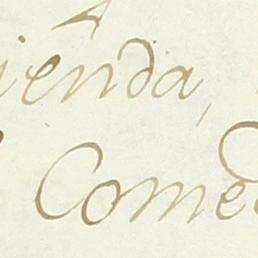 iênda,
Come